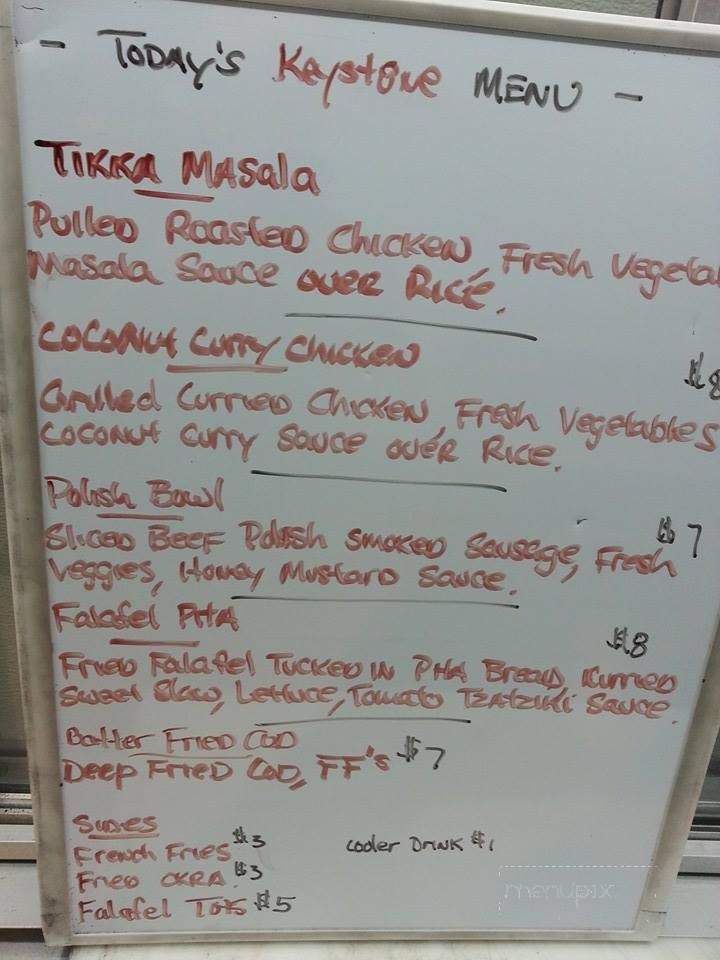 - TODAY'S Keystone MENU -
TIKKA MASala
Pulled Roasted Chicken, Fresh Vegetal
Masala Sauce over Rice.
COCONUT Curry Chicken
$8
Grilled Curried Chicken, Fresh Vegetables
COCONUT Curry Sauce over Rice.
Polish Bowl
$7
Sliced Beef Polish smoked Sausage, Fresh
Veggies, Honey Mustard Sauce.
Falafel PITA
$8
Fried Falafel Tucked in PITA Bread, Kurried
Sweet Slaw, Lettuce, Tomato Tzatziki Sauce.
Batter Fried Cod
Deep Fried Cod, FF's $7
Sides
French Fries $3
cooler Drink $1
Fried OKRA. $3
Falafel Tots $5
menupix